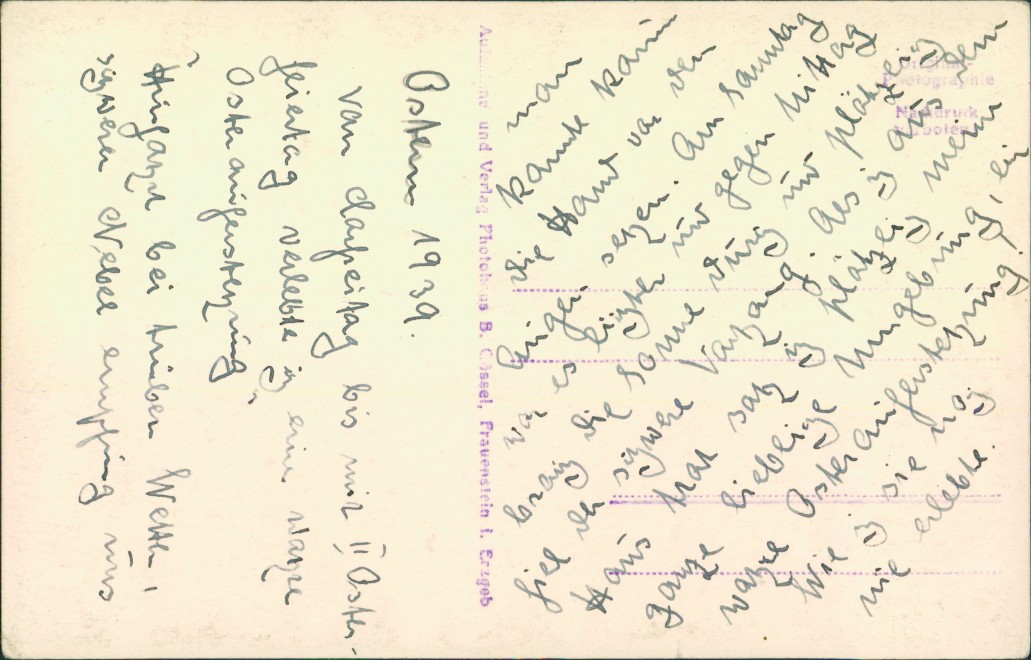 Ostern 1939.
Von Carfreitag bis mit II Oster-
feiertag verlebte ich eine wahre
Osterauferstehung,
Hinfahrt bei trüben Wetter,
schwerer Nebel empfing uns
man
konnte kaum
die Hand vor den
Augen sehen. Am Samstag
war es lichter und gegen Mittag
brach die Sonne durch und plötzlich
fiel der schwere Vorhang. Als ich aus dem
Haus trat sah ich plötzlich meine
ganze liebliche Umgebung, ein
wahre Osterauferstehung,
Wie ich sie noch
nie erlebte.
Aufnahme und Verlag Photohaus B. Gössel, Frauenstein i. Erzgeb
Original-
Photographie
Nachdruck
verboten